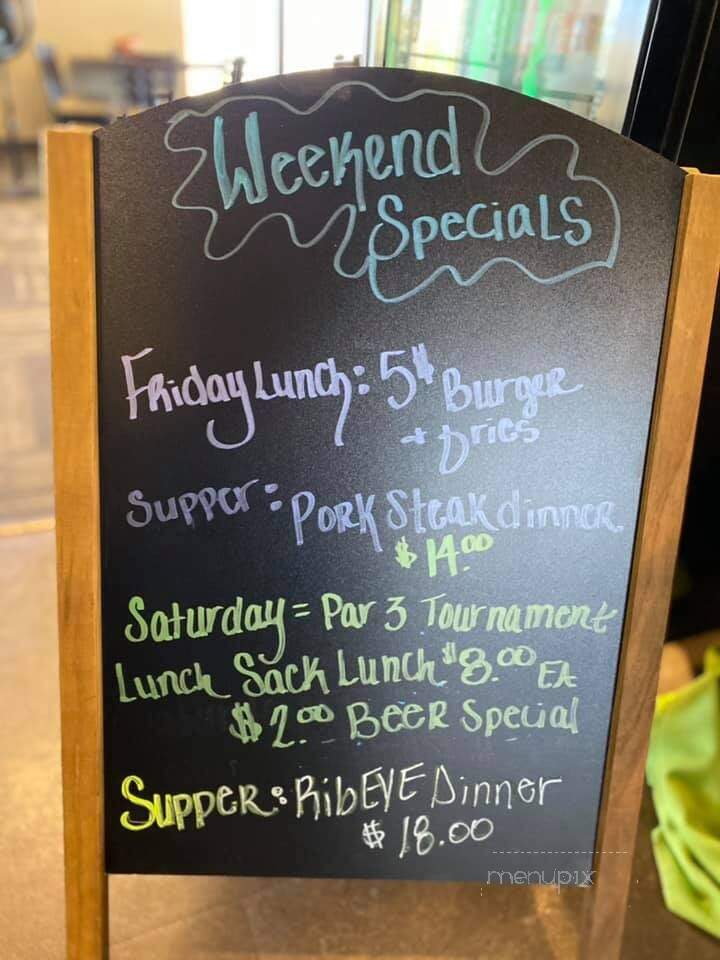 Weekend
Specials
Friday Lunch: 5$ Burger
+ Fries
Supper: Pork Steak dinner
$14.00
Saturday = Par 3 Tournament
Lunch Sack Lunch $8.00 EA
$2.00 Beer Special
Supper: RibEYE Dinner
$18.00
menupix